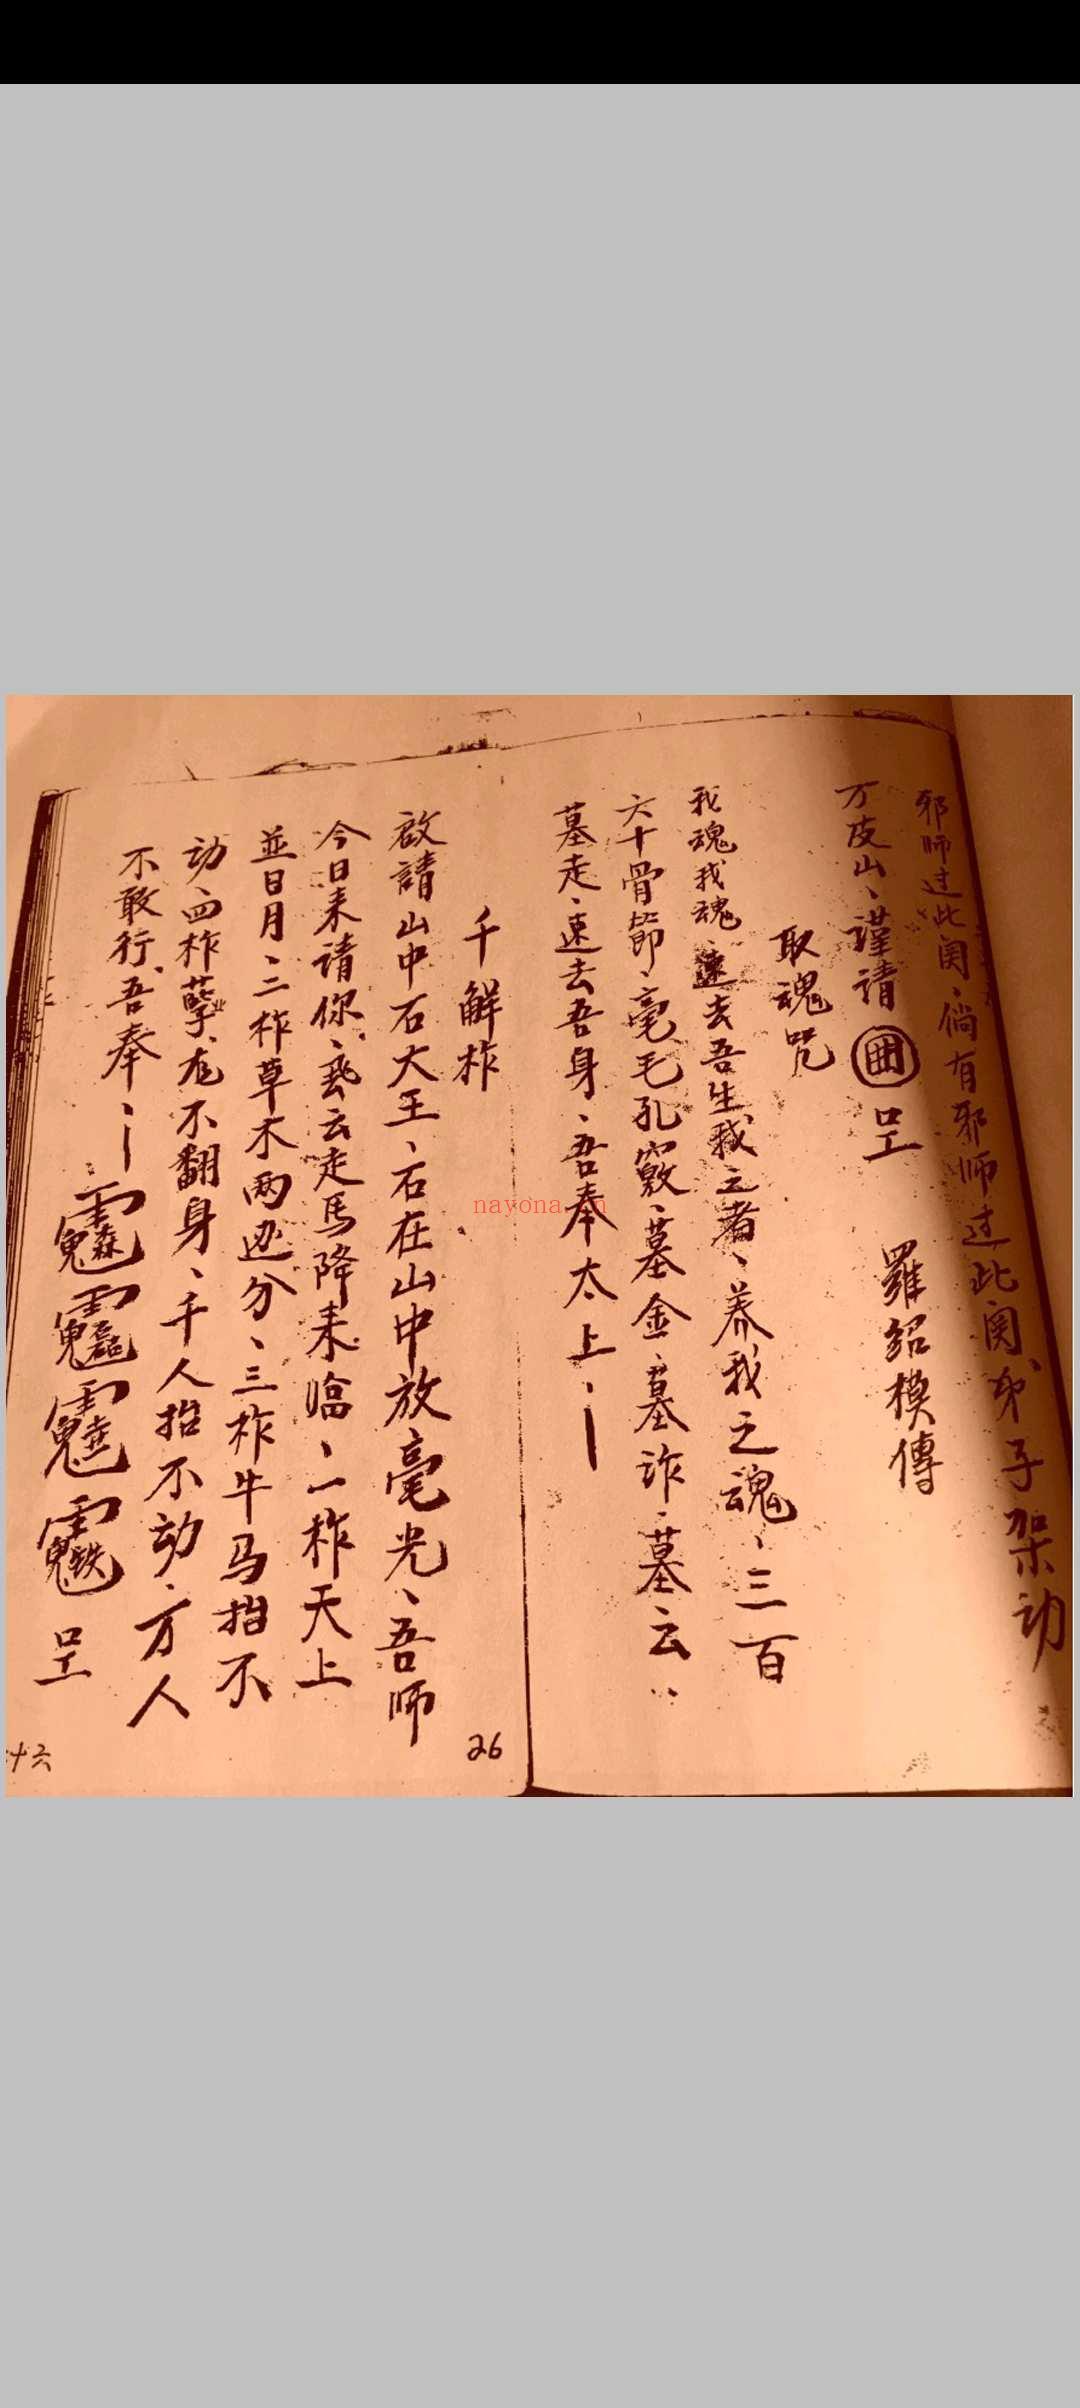 邪师过此関、倘有邪师过此関、弟子架动
万皮山、谨请 呈 羅紹模傳
取魂咒
我魂我魂、速去吾生我之者、养我之魂、三百
六十骨節、毫毛孔竅、墓金、墓诈、墓云
墓走、速去吾身、吾奉太上、
千斛柞
啟請山中石大王、石在山中放毫光、吾师
今日来请你、云走馬降来臨、一柞天上
並日月、二柞草木两边分、三柞牛马抬不
动、四柞孽龙不翻身、千人抬不动、万人
不敢行、吾奉、
呈
26
十六
nayona.cn